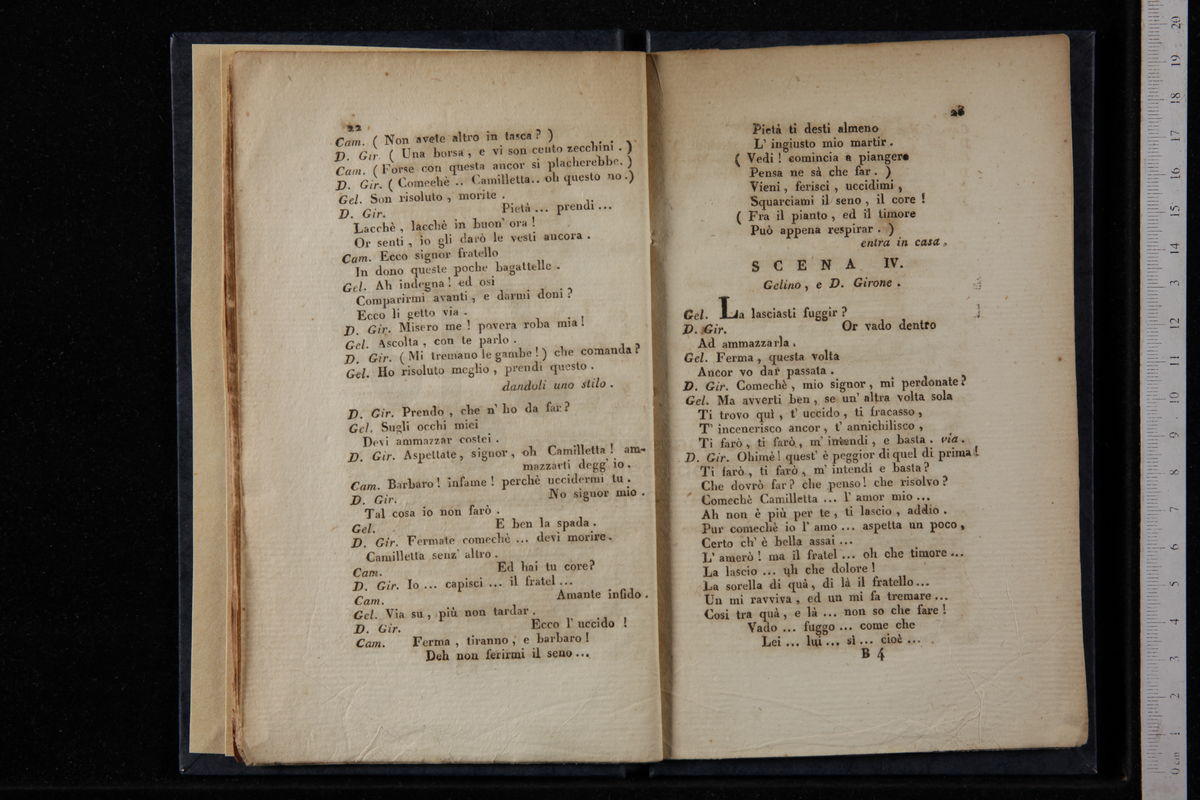 22
Cam. ( Non avete altro in tasca ? )
D. Gir. ( Una borsa , e vi son cento zecchini . )
Cam. ( Forse con questa ancor si placherebbe. )
D. Gir. ( Comechè .. Camilletta.. oh questo no .)
Gel. Son risoluto , morite .
D. Gir. Pietà ... prendi ...
Lacchè , lacchè in buon' ora !
Or senti , io gli darò le vesti ancora .
Cam. Ecco signor fratello
In dono queste poche bagattelle .
Gel. Ah indegna ! ed osi
Comparirmi avanti , e darmi doni ?
Ecco li getto via .
D. Gir. Misero me ! povera roba mia !
Gel. Ascolta , con te parlo .
D. Gir. ( Mi tremano le gambe ! ) che comanda ?
Gel. Ho risoluto meglio , prendi questo .
dandoli uno stilo .
D. Gir. Prendo , che n' ho da far ?
Gel. Sugli occhi miei
Devi ammazzar costei .
D. Gir. Aspettate , signor , oh Camilletta ! am-
mazzarti degg' io .
Cam. Barbaro ! infame ! perchè uccidermi tu .
D. Gir. No signor mio .
Tal cosa io non farò .
Gel. E ben la spada .
D. Gir. Fermate comechè ... devi morire .
Camilletta senz' altro .
Cam. Ed hai tu core?
D. Gir. Io ... capisci ... il fratel ...
Cam. Amante infido .
Gel. Via su , più non tardar .
D. Gir. Ecco l' uccido !
Cam. Ferma , tiranno , e barbaro !
Deh non ferirmi il seno ...
23
Pietà ti desti almeno
L' ingiusto mio martir .
( Vedi ! comincia a piangere
Pensa ne sà che far . )
Vieni , ferisci , uccidimi ,
Squarciami il seno , il core !
( Fra il pianto , ed il timore
Può appena respirar . )
entra in casa .
SCENA IV.
Gelino , e D. Girone .
Gel. La lasciasti fuggir ?
D. Gir. Or vado dentro
Ad ammazzarla .
Gel. Ferma , questa volta
Ancor vo dar passata .
D. Gir. Comechè , mio signor , mi perdonate ?
Gel. Ma avverti ben , se un' altra volta sola
Ti trovo quì , t' uccido , ti fracasso ,
T' incenerisco ancor , t' annichilisco ,
Ti farò , ti farò , m' intendi , e basta . via .
D. Gir. Ohimè ! quest' è peggior di quel di prima !
Ti farò , ti farò , m' intendi e basta ?
Che dovrò far ? che penso ! che risolvo ?
Comechè Camilletta ... l' amor mio ...
Ah non è più per te , ti lascio , addio .
Pur comechè io l' amo ... aspetta un poco ,
Certo ch' è bella assai ...
L' amerò ! ma il fratel ... oh che timore ...
La lascio ... uh che dolore !
La sorella di quà , di là il fratello ...
Un mi ravviva , ed un mi fa tremare ...
Così tra quà , e là ... non so che fare !
Vado ... fuggo ... come che
Lei ... lui ... sì ... cioè ...
B 4
0 cm 1 2 3 4 5 6 7 8 9 10 11 12 13 14 15 16 17 18 19 20